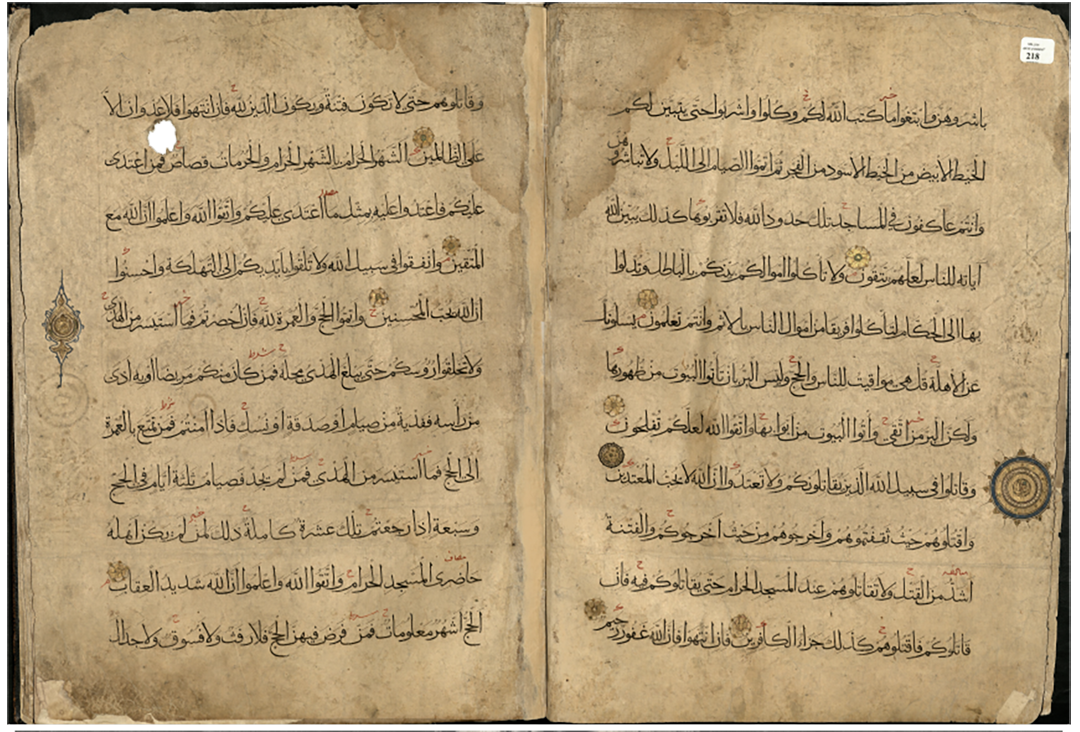 باشروهن وابتغوا ما كتب الله لكم وكلوا واشربوا حتى يتبين لكم
الخيط الأبيض من الخيط الأسود من الفجر ثم اتموا الصيام الى الليل ولا تباشروهن
وانتم عاكفون في المساجد تلك حدود الله فلا تقربوها كذلك يبين الله
آياته للناس لعلهم يتقون ولا تأكلوا اموالكم بينكم بالباطل وتدلوا
بها الى الحكام لتأكلوا فريقا من اموال الناس بالاثم وانتم تعلمون يسلونك
عن الأهلة قل هي مواقيت للناس والحج وليس البر بان تأتوا البيوت من ظهورها
ولكن البر من اتقى وأتوا البيوت من ابوابها واتقوا الله لعلكم تفلحون
وقاتلوا في سبيل الله الذين يقاتلونكم ولا تعتدوا ان الله لا يحب المعتدين
واقتلوهم حيث ثقفتموهم واخرجوهم من حيث اخرجوكم والفتنة
اشد من القتل ولا تقاتلوهم عند المسجد الحرام حتى يقاتلوكم فيه فان
قاتلوكم فاقتلوهم كذلك جزاء الكافرين فان انتهوا فان الله غفور رحيم
وقاتلوهم حتى لا تكون فتنة ويكون الدين لله فان انتهوا فلا عدوان الا
على الظالمين الشهر الحرام بالشهر الحرام والحرمات قصاص فمن اعتدى
عليكم فاعتدوا عليه بمثل ما اعتدى عليكم واتقوا الله واعلموا ان الله مع
المتقين وانفقوا في سبيل الله ولا تلقوا بايديكم الى التهلكة واحسنوا
ان الله يحب المحسنين واتموا الحج والعمرة لله فان احصرتم فما استيسر من الهدى
ولا تحلقوا رؤسكم حتى يبلغ الهدى محله فمن كان منكم مريضا او به اذى
من رأسه ففدية من صيام او صدقة او نسك فاذا امنتم فمن تمتع بالعمرة
الى الحج فما استيسر من الهدى فمن لم يجد فصيام ثلثة ايام في الحج
وسبعة اذا رجعتم تلك عشرة كاملة ذلك لمن لم يكن اهله
حاضرى المسجد الحرام واتقوا الله واعلموا ان الله شديد العقاب
الحج اشهر معلومات فمن فرض فيهن الحج فلا رفث ولا فسوق ولا جدال
218